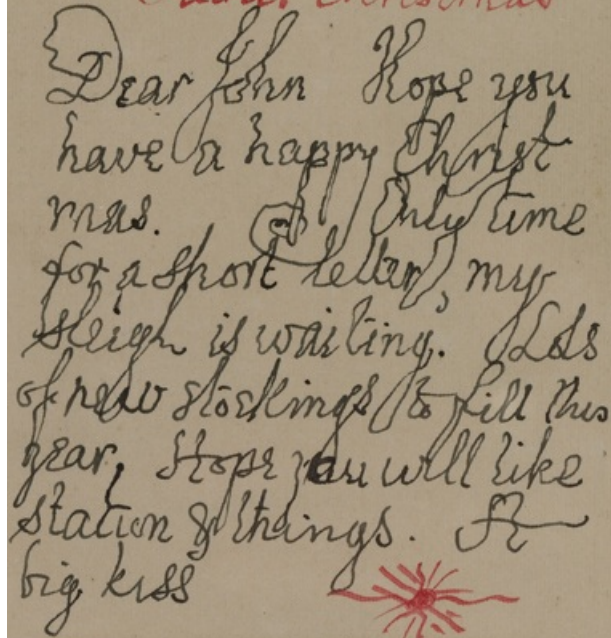 Father Christmas
Dear John Hope you
have a happy Christ
mas. Only time
for a short letter, my
sleigh is waiting. Lots
of new stockings to fill this
year. Hope you will like
station & things. A
big kiss